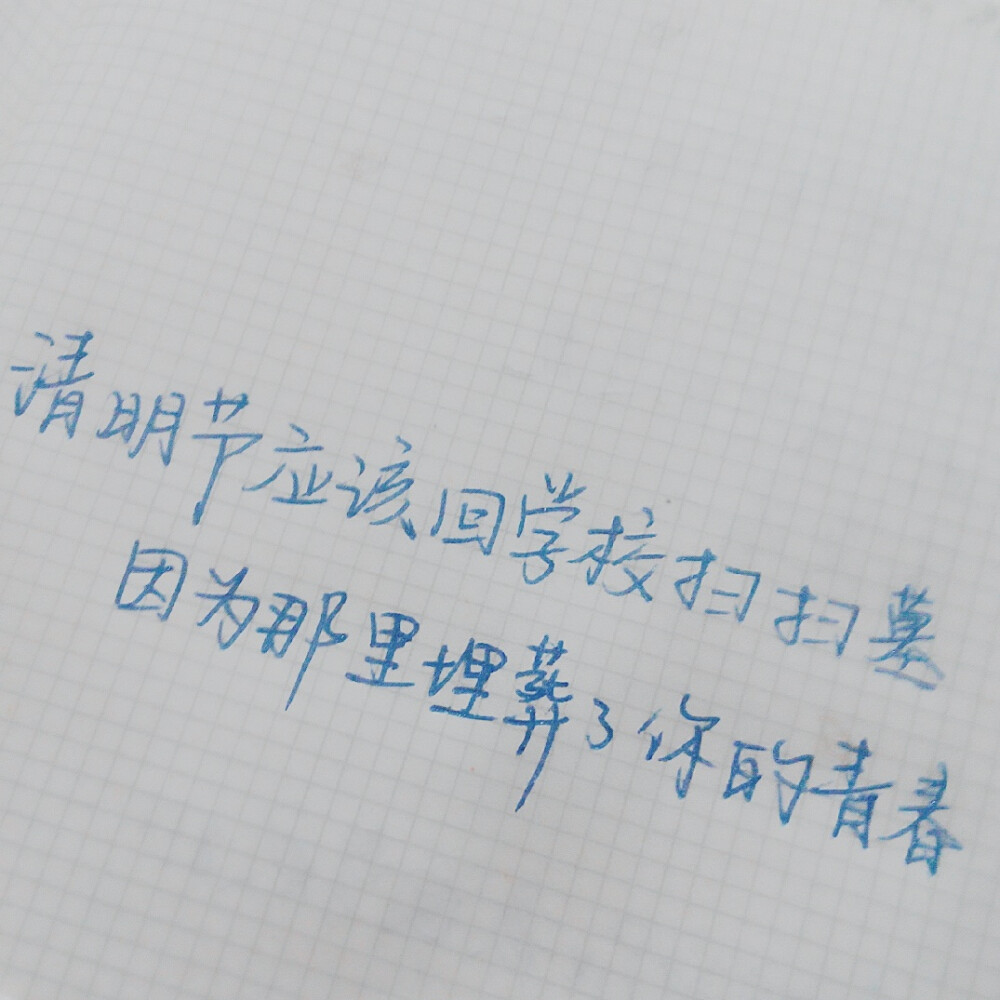 清明节应该回学校扫扫墓
因为那里埋葬了你的青春